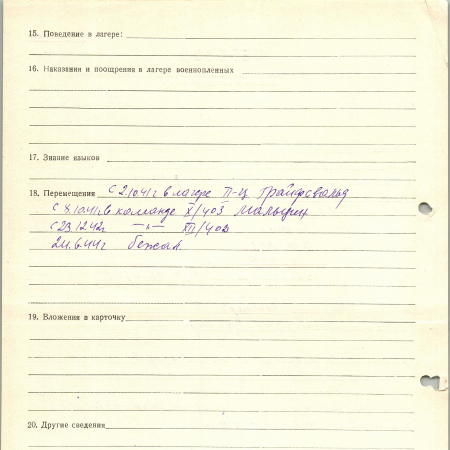 15. Поведение в лагере:
16. Наказания и поощрения в лагере военнопленных
17. Знание языков
18. Перемещения с 2.10.41г в лагере II-Ц Грайфсвальд
с 8.10.41г в команде X/403 Мальцин
с 23.12.42г —"— XII/402
24.6.44г бежал
19. Вложения в карточку
20. Другие сведения